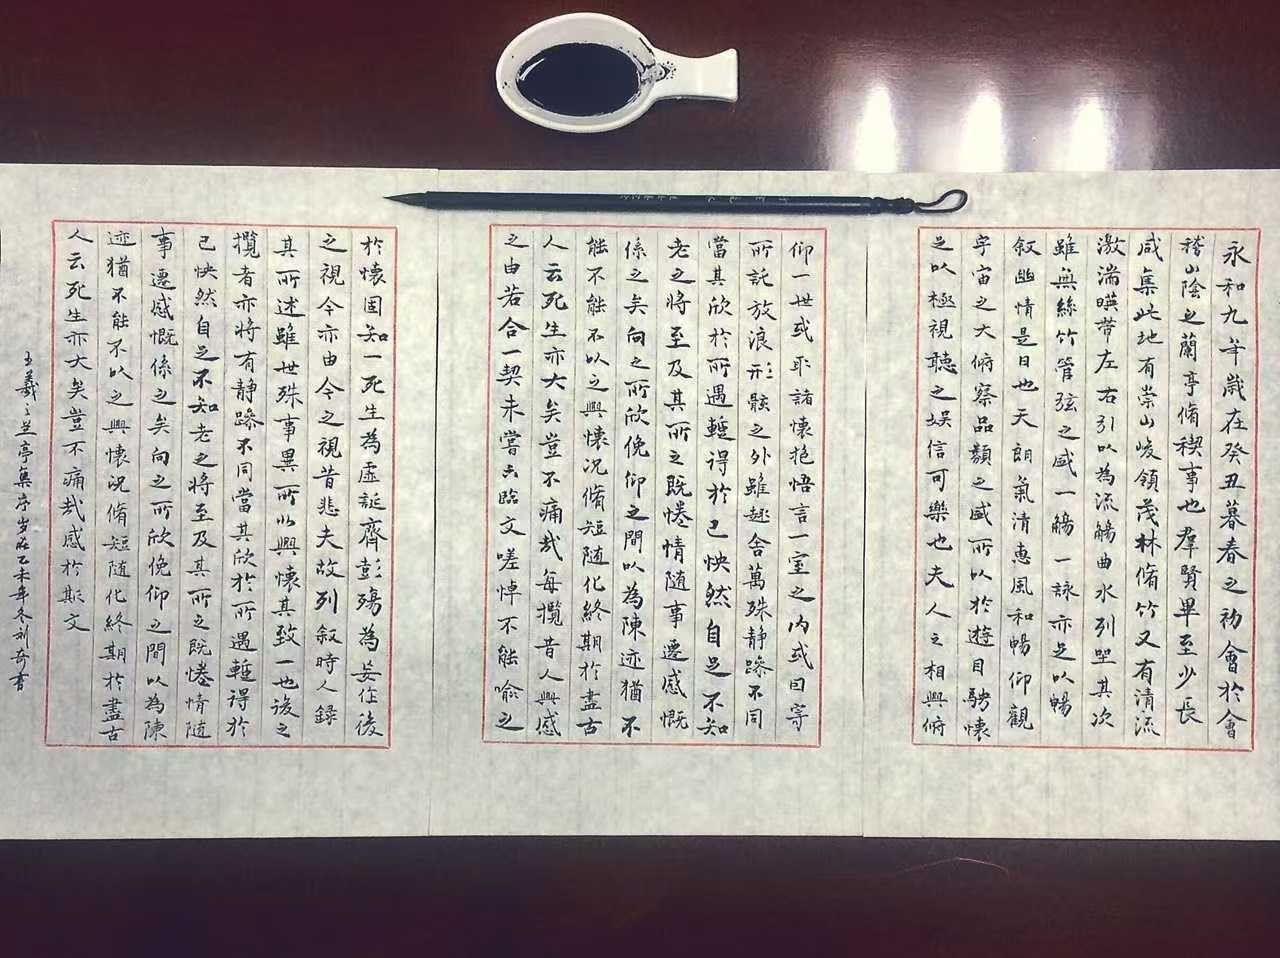 永和九年歲在癸丑暮春之初會於會
稽山陰之蘭亭脩稧事也羣賢畢至少長
咸集此地有崇山峻領茂林脩竹又有清流
激湍暎帶左右引以為流觴曲水列坐其次
雖無絲竹管弦之盛一觴一詠亦足以暢
叙幽情是日也天朗氣清惠風和暢仰觀
宇宙之大俯察品類之盛所以於遊目騁懷
足以極視聽之娱信可樂也夫人之相與俯
仰一世或取諸懷抱悟言一室之内或曰寄
所託放浪形骸之外雖趣舍萬殊静躁不同
當其欣於所遇蹔得於己怏然自足不知
老之將至及其所之既惓情隨事遷感慨
係之矣向之所欣俛仰之間以為陳迹猶不
能不能不以之興懷况脩短随化終期於盡古
人云死生亦大矣豈不痛哉每攬昔人興感
之由若合一契未嘗臨文嗟悼不能喻之
於懷固知一死生為虛誕齊彭殤為妄作後
之視今亦由今之視昔悲夫故列叙時人録
其所述雖世殊事異所以興懷其致一也後之
攬者亦將有静躁不同當其欣於所遇蹔得於
己怏然自足不知老之將至及其所之既惓情随
事遷感慨係之矣向之所欣俛仰之間以為陳
迹猶不能不以之興懷况脩短随化終期於盡古
人云死生亦大矣豈不痛哉感於斯文
王羲之兰亭集序岁在乙未年冬利奇書